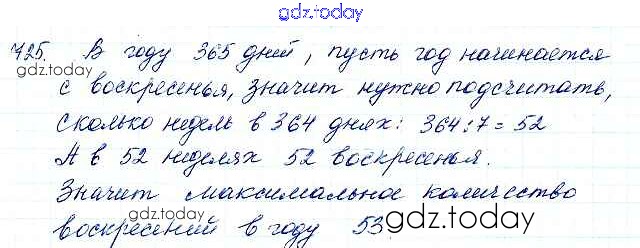 gdz.today
725. В году 365 дней, пусть год начинается
gdz.today
с воскресенья, значит нужно подсчитать,
сколько недель в 364 днях: 364:7=52
А в 52 неделях 52 воскресенья.
gdz.today
Значит максимальное количество
gdz.today
воскресений в году 53
gdz.today